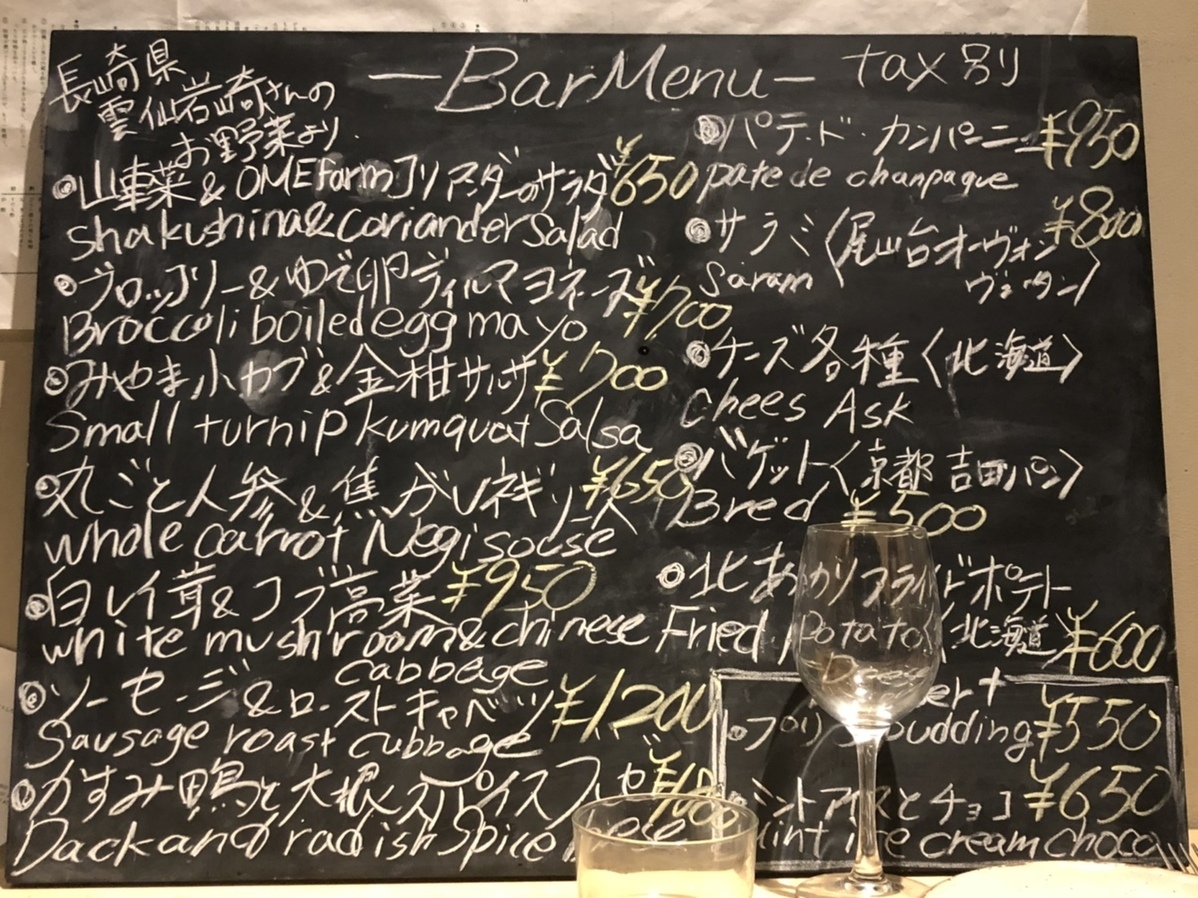 長崎県
雲仙岩崎さんの
お野菜より
ーBar Menuー tax 別
山東菜 & OME Farm コリアンダーのサラダ ¥650
shakushina & coriander Salad
ブロッコリー & ゆで卵 ディルマヨネーズ ¥700
Broccoli boiled egg mayo
みやま小カブ & 金柑サルサ ¥700
Small turnip kumquat Salsa
丸ごと人参 & 焦がしネギソース ¥650
whole carrot Negi souse
白レイ茸 & コブ高菜 ¥950
white mushroom & chinese
cabbege
ソーセージ & ローストキャベツ ¥1200
Sausage roast cubbage
かすみ鴨と大根 スパイス
Dack and radish Spice
パテ・ド・カンパーニュ ¥950
pate de chanpague
サラミ〈尾山台オーヴォン ¥800
ヴュータン〉
Saram
チーズ各種〈北海道〉
Chees Ask
バゲット〈京都 吉田パン〉
Bred ¥500
北あかりフライドポテト
Fried Potato〈北海道〉 ¥600
プリン pudding ¥550
ミントアイスとチョコ ¥650
Mint ice cream choco